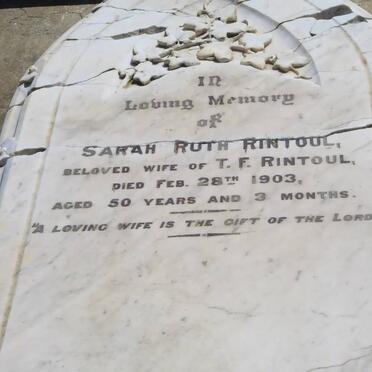 In
Loving Memory
of
SARAH RUTH RINTOUL,
BELOVED WIFE OF T. F. RINTOUL,
DIED FEB. 28TH 1903,
AGED 50 YEARS AND 3 MONTHS.
"A LOVING WIFE IS THE GIFT OF THE LORD